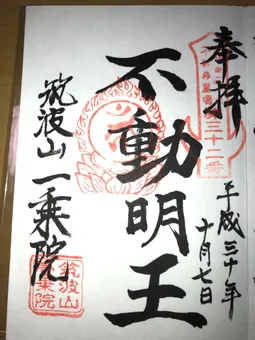 奉拝
三十一番
平成三十年
十月七日
不動明王
筑波山一乗院
筑波山
一乗院